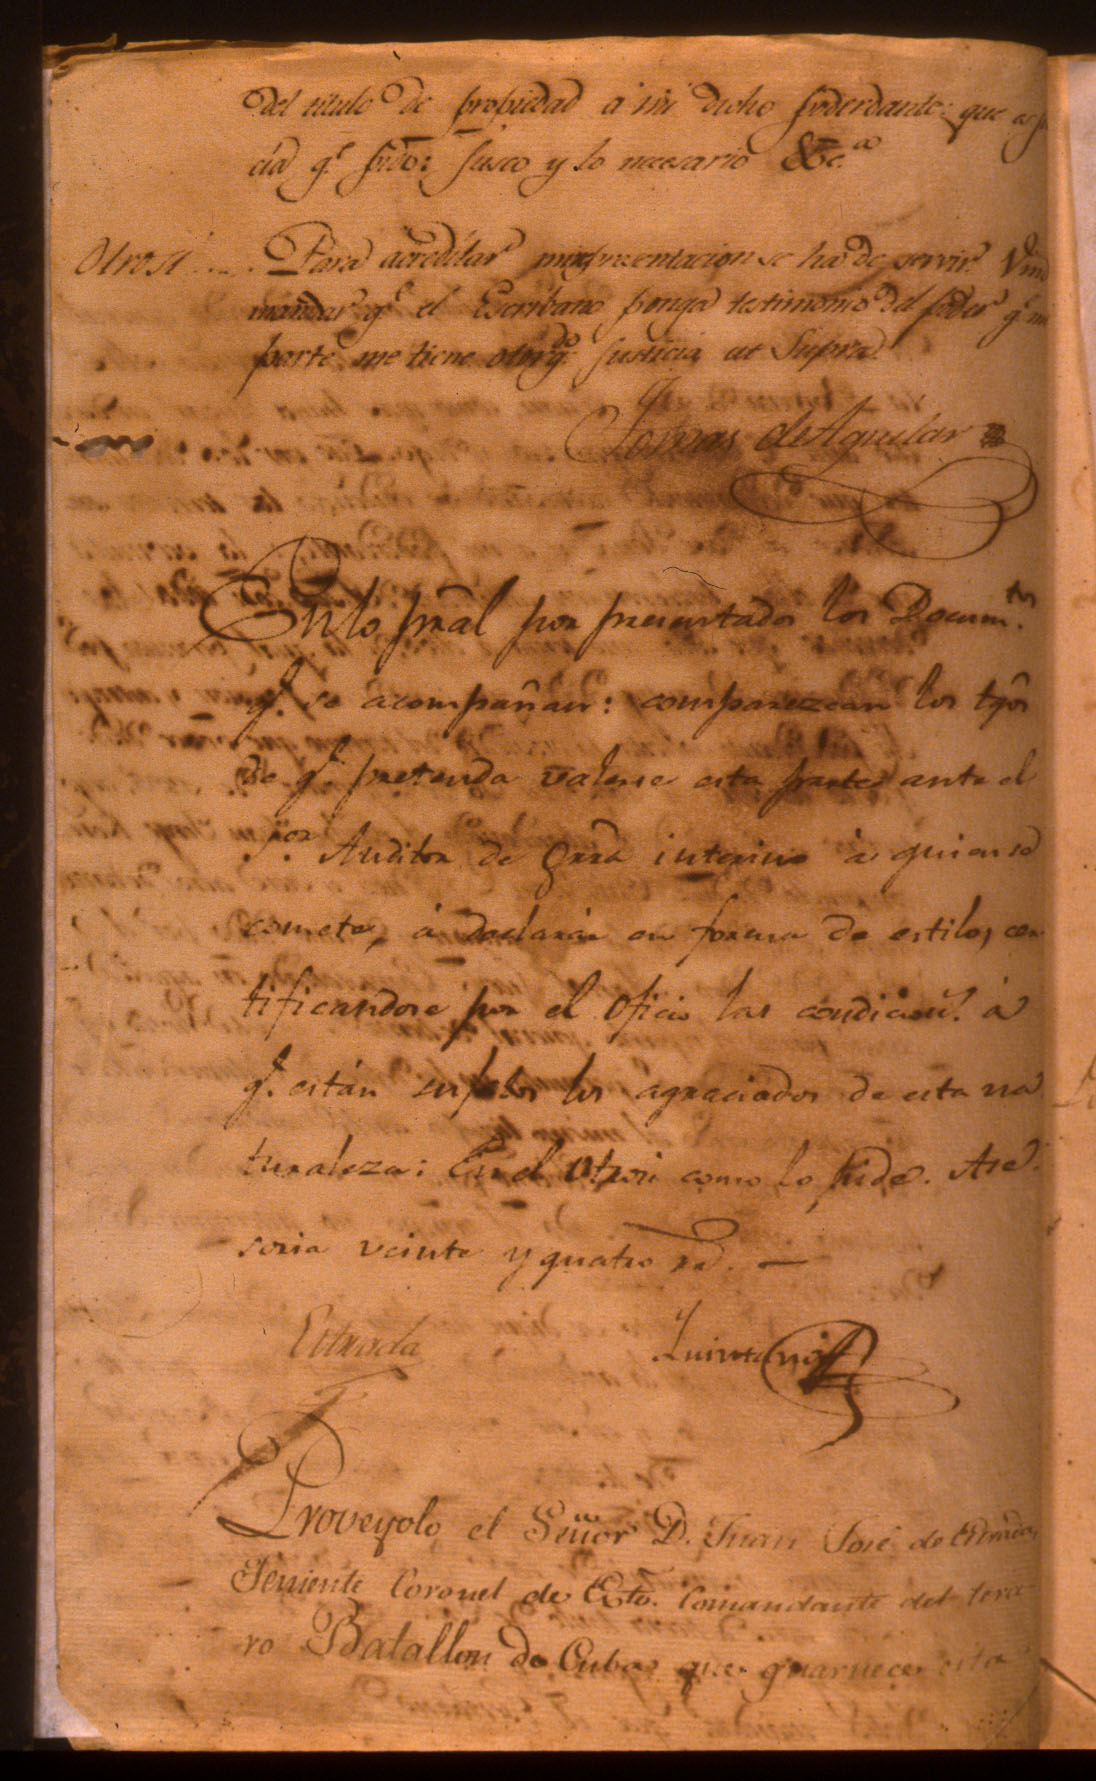 del titulo de propiedad a mi dicho poderdante: que es jus
cia q.e pido: juro y lo necesario &c.a
Otrosi Para acreditar mi representacion se ha de servir V
mandar q.e el Escribano ponga testimonio del poder q.e mi
parte me tiene otorg.do Justicia ut Supra
Tomas de Aguilar
En lo pral por presentados los Docum.tos
q.e se acompañan: comparezcan los tgos
de q.e pretenda valerse esta parte ante el
S.or Auditor de Grra interino á quien se
comete, á declarár en forma de estilo, cer
tificandose por el Oficio las condicion.s á
q.e están sujetos los agraciados de esta na
turaleza: En el Otrosi como lo pide. Ase
soria veinte y quatro rs. —
Estrada Quintana
Proveyolo el Señor D. Juan José de Estrada
Teniente Coronel de Exto. Comandante del terce
ro Batallon de Cuba que guarnece esta